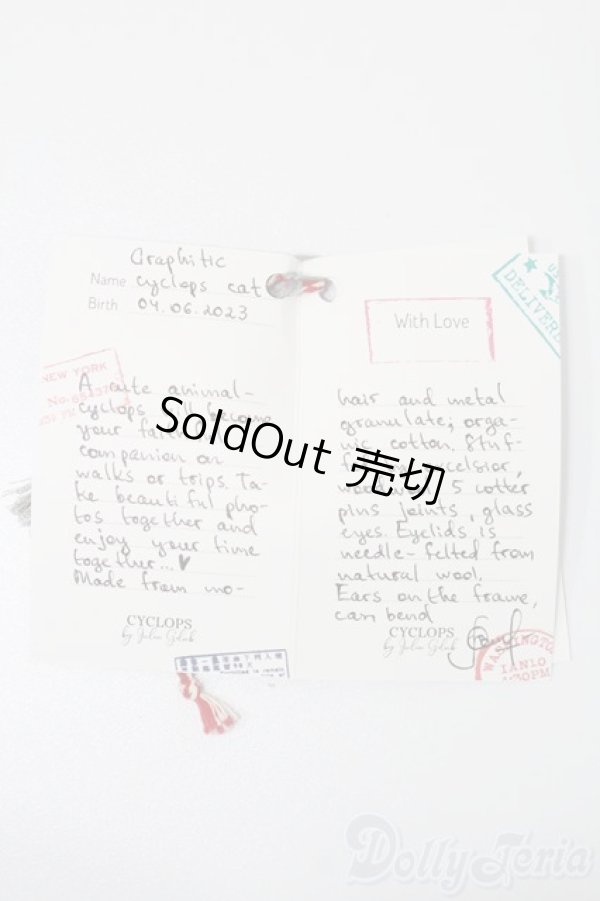 Graphitic
Name cyclops cat
Birth 04.06.2023
A cute animal-
cyclops will become
your faithful
companion on
walks or trips. Ta-
ke beautiful pho-
tos together and
enjoy your time
together...♥
Made from mo-
CYCLOPS
by Julia Glub
NEW YORK
With Love
DELIVERE
hair and metal
granulate; orga-
nic cotton. Stuf-
excelsior,
5 cotter
pins joints, glass
eyes. Eyelids is
needle-felted from
natural wool.
Ears on the frame,
can bend
CYCLOPS
WASHINGTO
IANLO
:30PM
SoldOut 売切
DollyTeria